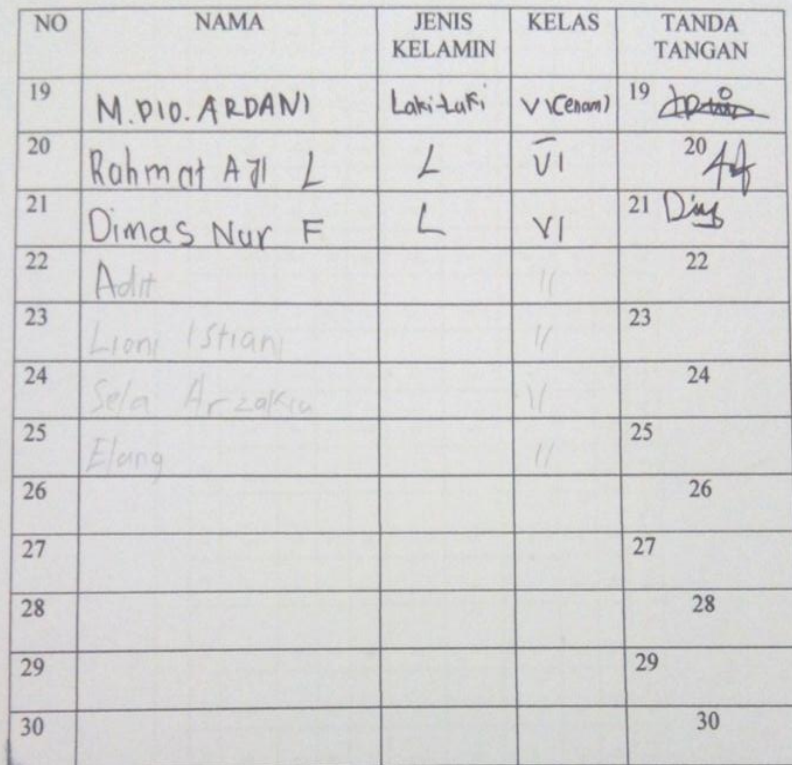 NO NAMA JENIS KELAMIN KELAS TANDA TANGAN
19 M.DIO.ARDANI Laki-Laki VI(enam) 19
20 Rahmat AJI L L VI 20
21 Dimas Nur F L VI 21 Dim
22 Adit " 22
23 Lioni Istiani " 23
24 Sela Arzakia " 24
25 Elang " 25
26 26
27 27
28 28
29 29
30 30